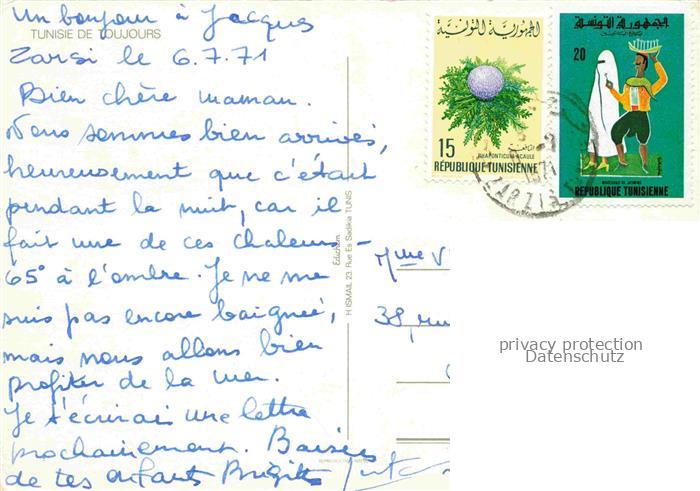 un bonjour à Jacques
TUNISIE DE TOUJOURS
Zarsi le 6.7.71
Bien chère maman.
Nous sommes bien arrivés,
heureusement que c'était
pendant la nuit, car il
fait une de ces chaleurs -
65° à l'ombre. Je ne me
suis pas encore baignée,
mais nous allons bien
profiter de la mer.
Je t'écrirai une lettre
prochainement. Baisers
de tes enfants Brigitte
H ISMAIL 23, Rue Es Sadikia TUNIS
الجمهورية التونسية
15
RHAPONTICUM ACAULE
RÉPUBLIQUE TUNISIENNE
جمهورية التونسية
20
MARCHAND DE JASMINS
REPUBLIQUE TUNISIENNE
ZARZIS
Mme V
38, rue
privacy protection
Datenschutz